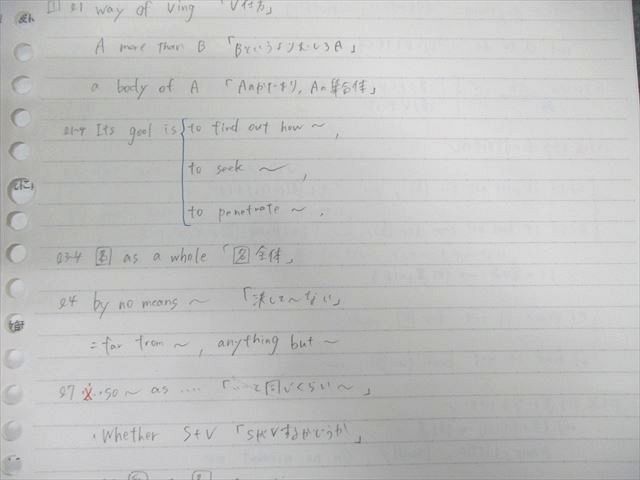 1 l1 way of Ving 「V仕方」
A more than B 「BというよりむしろA」
a body of A 「Aのかたまり, Aの集合体」
l1-4 Its goal is to find out how ~ ,
to seek ~ ,
to penetrate ~ .
l3-4 名 as a whole 「名全体」
l4 by no means ~ 「決して~ない」
= far from ~ , anything but ~
l7 ...so ~ as .... 「...と同じくらい~」
・Whether S+V 「SがVするかどうか」